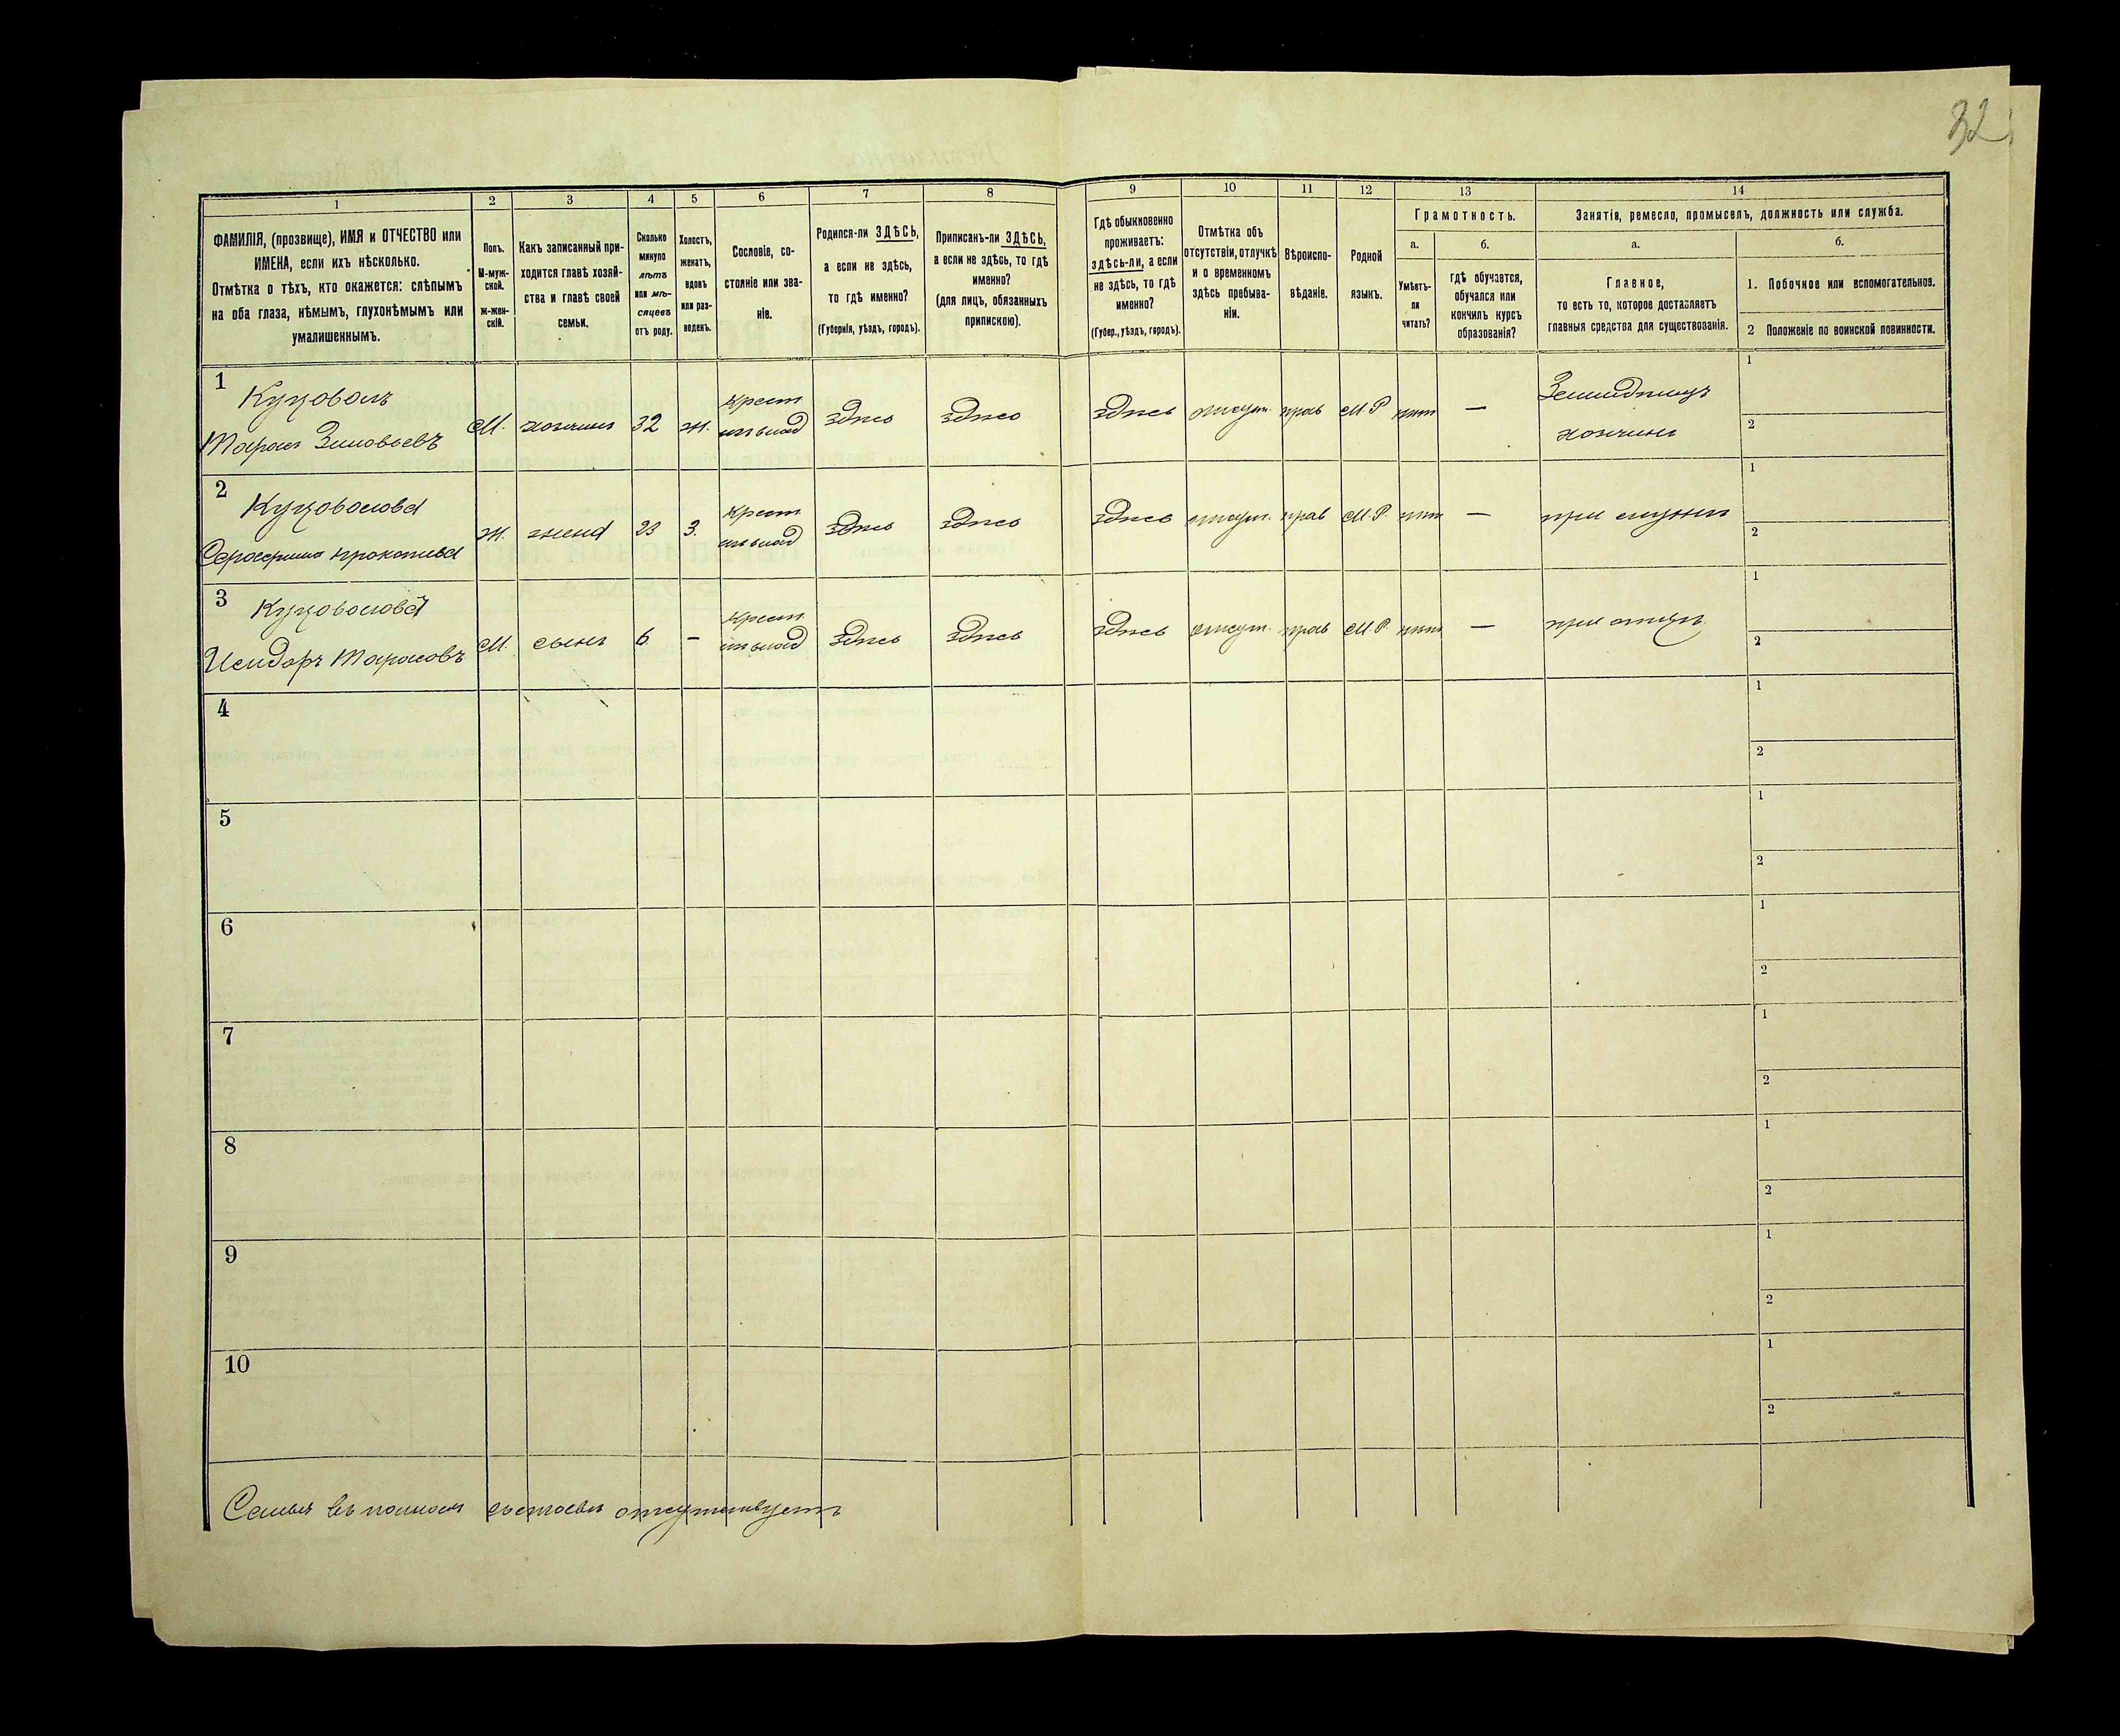 32
1
2
3
4
5
6
7
8
9
10
11
12
13
14
ФАМИЛІЯ, (прозвище), ИМЯ и ОТЧЕСТВО или
ИМЕНА, если ихъ нѣсколько.
Отмѣтка о тѣхъ, кто окажется: слѣпымъ
на оба глаза, нѣмымъ, глухонѣмымъ или
умалишеннымъ.
Полъ.
М-муж-
ской.
Ж-жен-
скій.
Какъ записанный при-
ходится главѣ хозяй-
ства и главѣ своей
семьи.
Сколько
минуло
лѣтъ
или мѣ-
сяцевъ
отъ роду.
Холостъ,
женатъ,
вдовъ
или раз-
веденъ.
Сословіе, со-
стояніе или зва-
ніе.
Родился-ли ЗДѢСЬ,
а если не здѣсь,
то гдѣ именно?
(Губернія, уѣздъ, городъ).
Приписанъ-ли ЗДѢСЬ,
а если не здѣсь, то гдѣ
именно?
(для лицъ, обязанныхъ
припискою).
Гдѣ обыкновенно
проживаетъ:
здѣсь-ли, а если
не здѣсь, то гдѣ
именно?
(Губер., уѣздъ, городъ).
Отмѣтка объ
отсутствіи, отлучкѣ
и о временномъ
здѣсь пребыва-
ніи.
Вѣроиспо-
вѣданіе.
Родной
языкъ.
Грамотность.
а.
Умѣетъ-
ли
читать?
б.
гдѣ обучается,
обучался или
кончилъ курсъ
образованія?
Занятіе, ремесло, промыселъ, должность или служба.
а.
Главное,
то есть то, которое доставляетъ
главныя средства для существованія.
б.
1. Побочное или вспомогательное.
2 Положеніе по воинской повинности.
1
Куцоволъ
Тарас Зиновьевъ
М. хозяинъ 32 ж. крест здѣсь здѣсь здѣсь отсут. прав М Р нѣт —
хозяинъ
1
2
2
Куцоволова
Прокопьева
ж. жена 23 З. крест здѣсь здѣсь здѣсь отсут. прав М. Р. нѣт — при мужѣ
1
2
3
Куцоволовъ
Исидоръ Тарасовъ
М. сынъ 6 – крест здѣсь здѣсь здѣсь отсут. прав М. Р. нѣт — при отцѣ
1
2
4
1
2
5
1
2
6
1
2
7
1
2
8
1
2
9
1
2
10
1
2
Семья въ полном составѣ отсутствуетъ